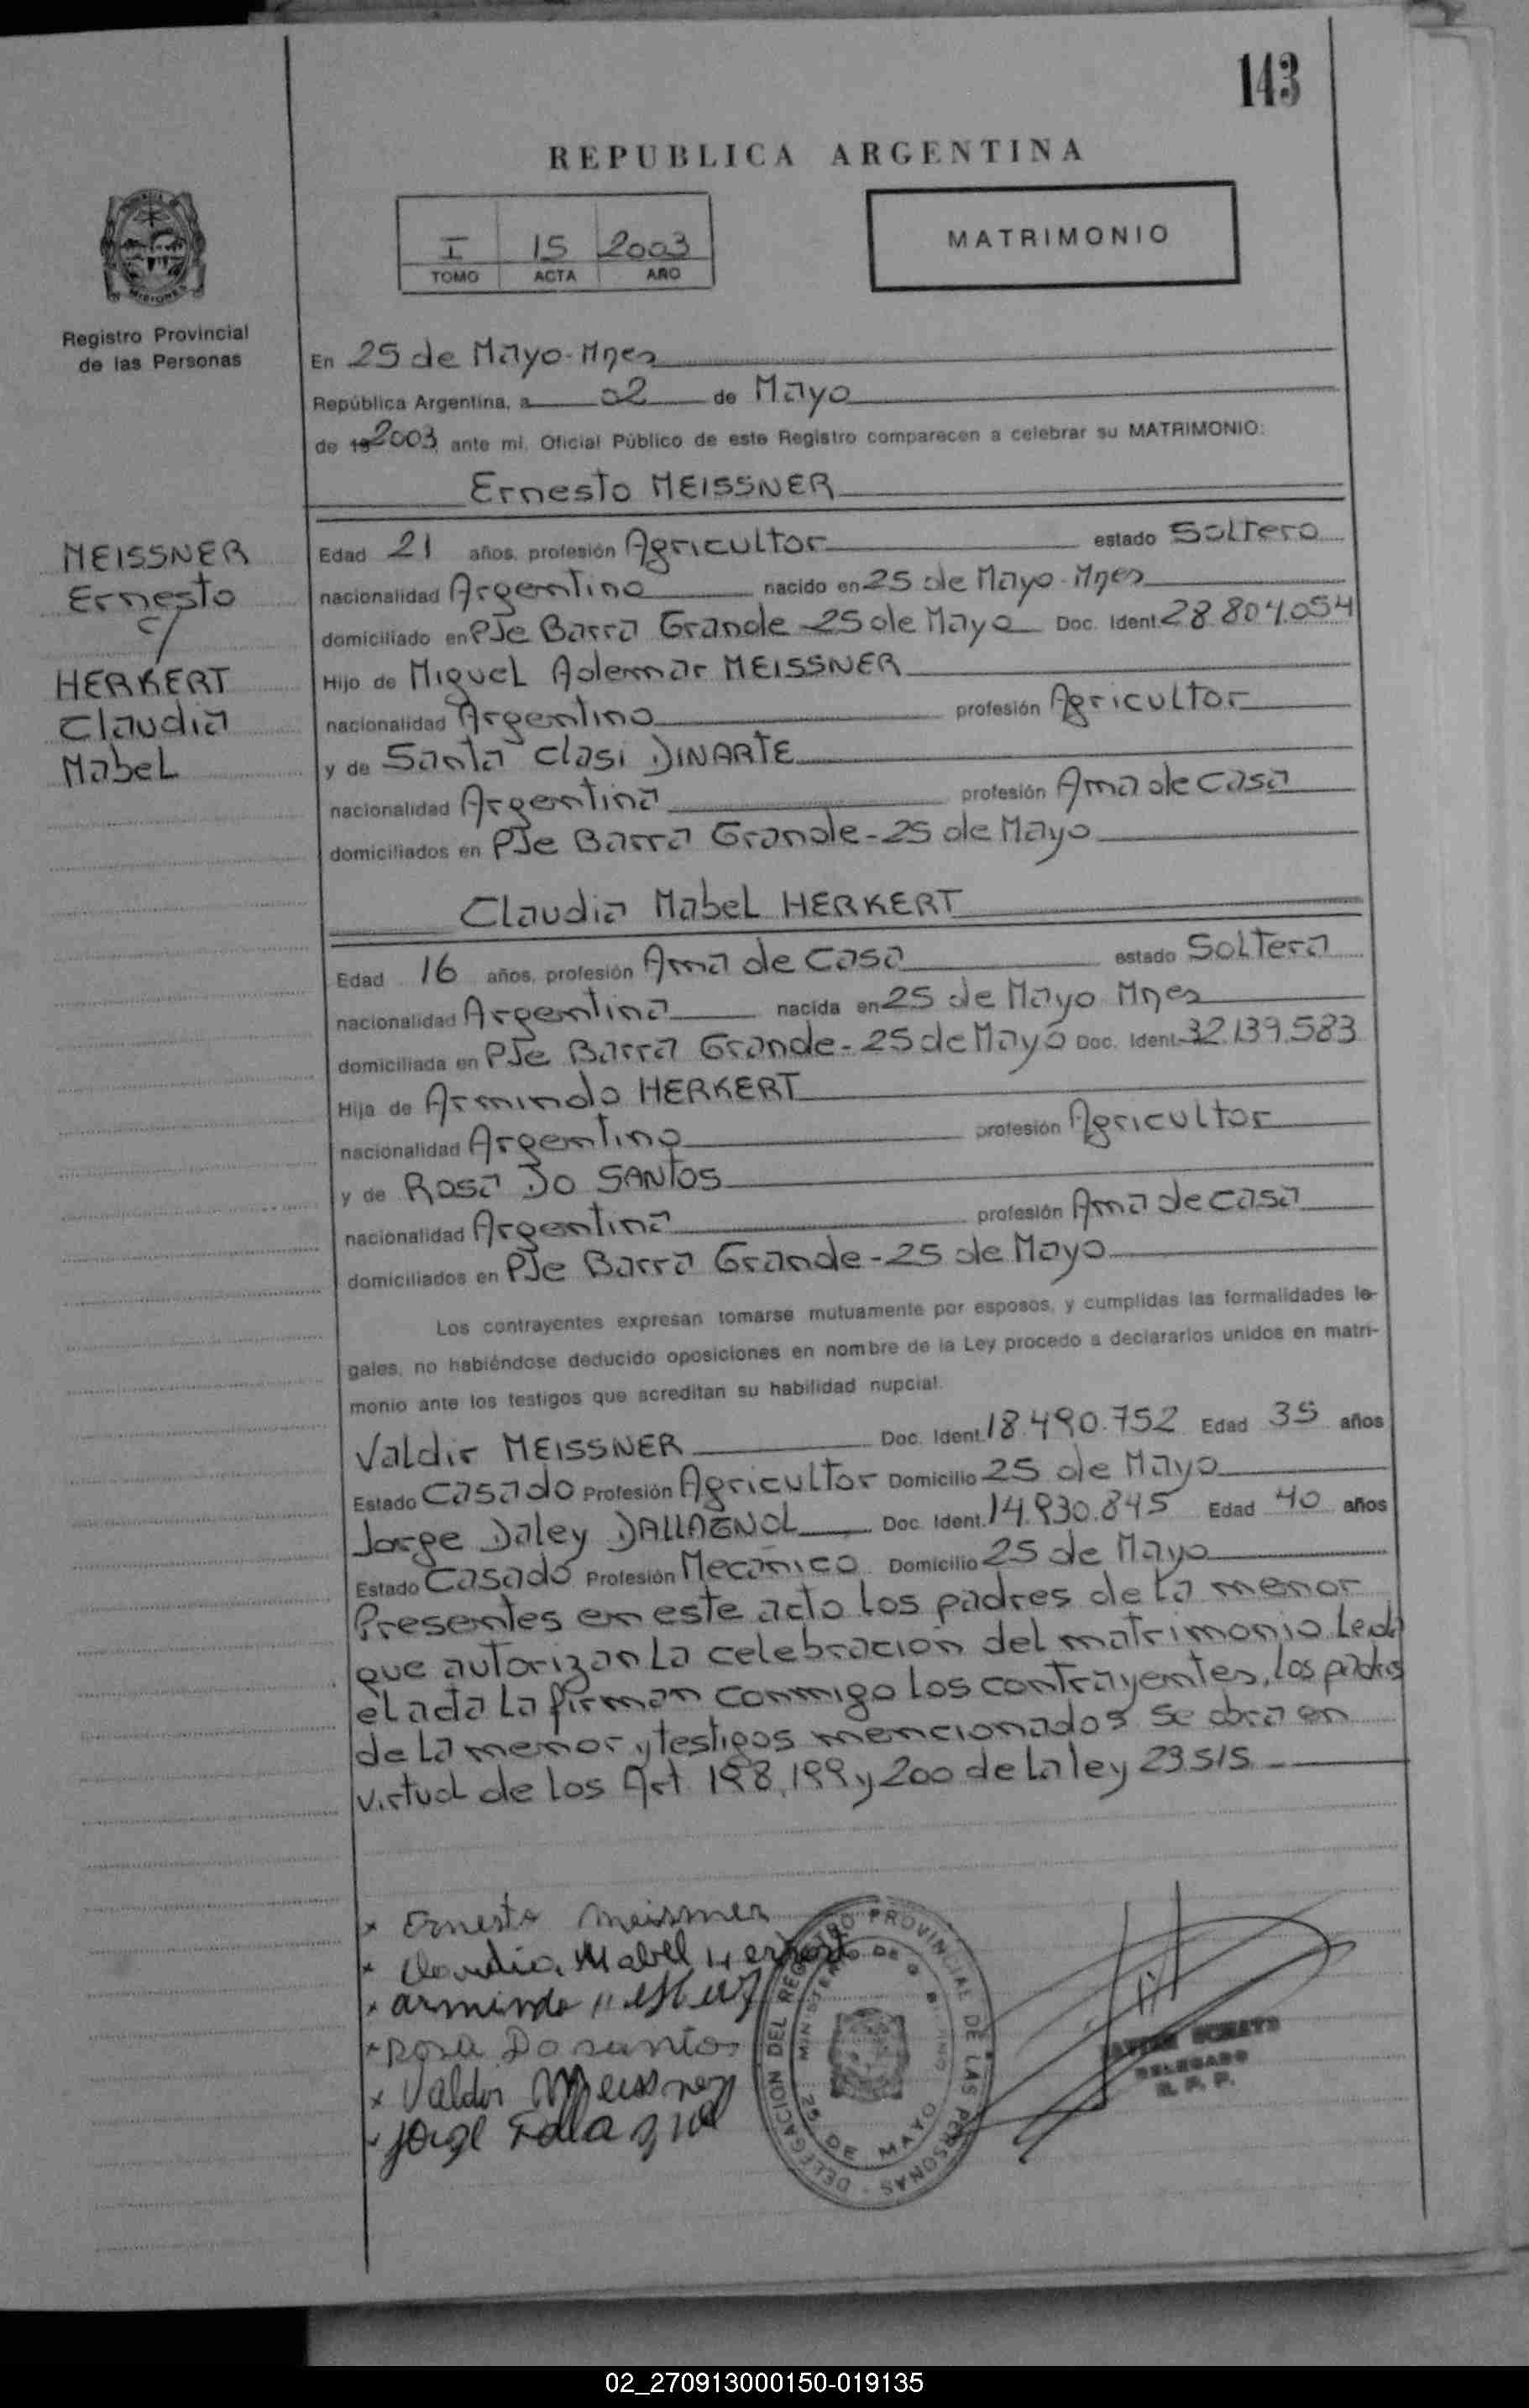 143
REPUBLICA ARGENTINA
I 15 2003
TOMO ACTA AÑO
MATRIMONIO
Registro Provincial
de las Personas
En 25 de Mayo-Mnes
República Argentina, a 02 de Mayo
de 19 2003, ante mi, Oficial Público de este Registro comparecen a celebrar su MATRIMONIO:
Ernesto MEISSNER
MEISSNER
Ernesto
c/
HERKERT
Claudia
Mabel
Edad 21 años, profesión Agricultor estado Soltero
nacionalidad Argentino nacido en 25 de Mayo-Mnes
domiciliado en PJe Barra Grande-25 de Mayo Doc. Ident. 28.804.054
Hijo de Miguel Ademar MEISSNER
nacionalidad Argentino profesión Agricultor
y de Santa Clasi DINARTE
nacionalidad Argentina profesión Ama de casa
domiciliados en PJe Barra Grande-25 de Mayo
Claudia Mabel HERKERT
Edad 16 años, profesión Ama de Casa estado Soltera
nacionalidad Argentina nacida en 25 de Mayo Mnes
domiciliada en PJe Barra Grande-25 de Mayo Doc. Ident. 32.139.583
Hija de Armindo HERKERT
nacionalidad Argentino profesión Agricultor
y de Rosa DO SANTOS
nacionalidad Argentina profesión Ama de casa
domiciliados en PJe Barra Grande-25 de Mayo
Los contrayentes expresan tomarse mutuamente por esposos, y cumplidas las formalidades le-
gales, no habiéndose deducido oposiciones en nombre de la Ley procedo a declararlos unidos en matri-
monio ante los testigos que acreditan su habilidad nupcial.
Valdir MEISSNER Doc. Ident. 18.490.752 Edad 35 años
Estado Casado Profesión Agricultor Domicilio 25 de Mayo
Jorge Daley DALLAGNOL Doc. Ident. 14.930.845 Edad 40 años
Estado Casado Profesión Mecánico Domicilio 25 de Mayo
Presentes en este acto los padres de la menor
que autorizan la celebración del matrimonio Leida
el acta la firman conmigo los contrayentes, los padres
de la menor y testigos mencionados se obra en
virtud de los Art. 198, 199 y 200 de la ley 23.515
x Ernesto Meissner
x Claudia Mabel Herkert
x armindo Herkert
x Rosa Do santos
x Valdir Meissner
x jorge Dalagnol
DELEGACION DEL REGISTRO PROVINCIAL DE LAS PERSONAS
MINISTERIO DE GOBIERNO
25 DE MAYO
DELEGADO
R. P. P.
02_270913000150-019135